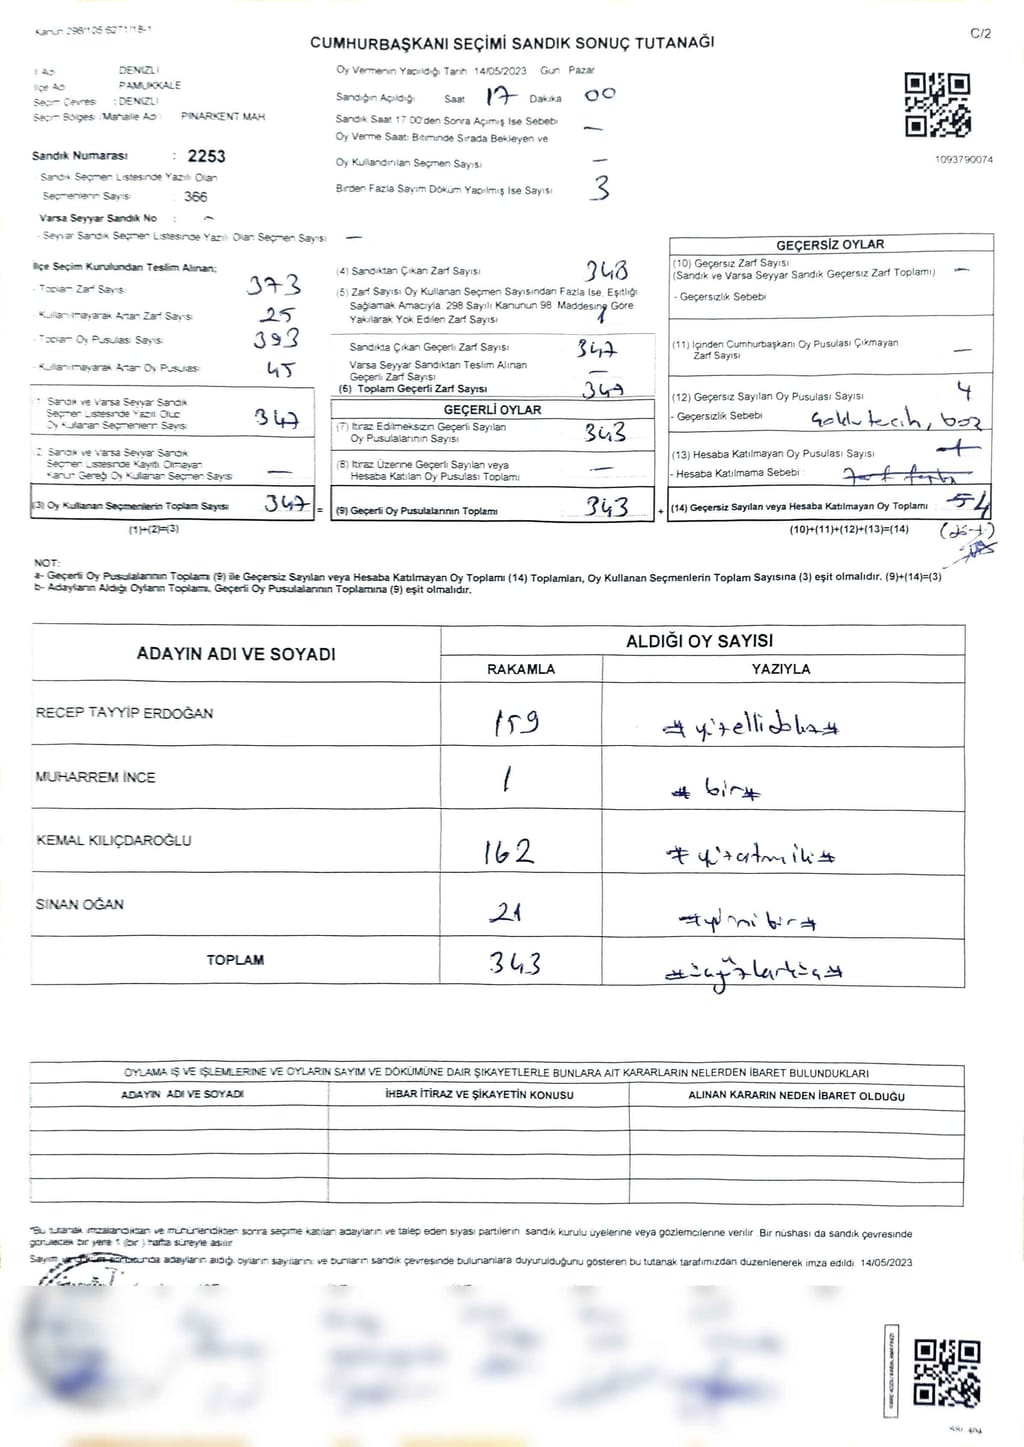 Kanun 298/105 6271/18-1
C/2
CUMHURBAŞKANI SEÇİMİ SANDIK SONUÇ TUTANAĞI
İl Adı DENİZLİ
İlçe Adı PAMUKKALE
Seçim Çevresi : DENİZLİ
Seçim Bölgesi /Mahalle Adı : PINARKENT MAH
Sandık Numarası : 2253
Sandık Seçmen Listesinde Yazılı Olan
Seçmenlerin Sayısı : 366
Varsa Seyyar Sandık No : -
- Seyyar Sandık Seçmen Listesinde Yazılı Olan Seçmen Sayısı —
Oy Vermenin Yapıldığı Tarih 14/05/2023 Gün Pazar
Sandığın Açıldığı Saat 17 Dakika 00
Sandık Saat 17 00'den Sonra Açılmış İse Sebebi —
Oy Verme Saati Bitiminde Sırada Bekleyen ve
Oy Kullandırılan Seçmen Sayısı —
Birden Fazla Sayım Döküm Yapılmış İse Sayısı 3
1093790074
İlçe Seçim Kurulundan Teslim Alınan;
- Toplam Zarf Sayısı 373
- Kullanılmayarak Artan Zarf Sayısı 25
- Toplam Oy Pusulası Sayısı 393
- Kullanılmayarak Artan Oy Pusulası 45
1. Sandık ve Varsa Seyyar Sandık
Seçmen Listesinde Yazılı Olup
Oy Kullanan Seçmenlerin Sayısı 347
2. Sandık ve Varsa Seyyar Sandık
Seçmen Listesinde Kayıtlı Olmayan
Kanun Gereği Oy Kullanan Seçmen Sayısı —
(3) Oy Kullanan Seçmenlerin Toplam Sayısı 347 =
(1)+(2)=(3)
(4) Sandıktan Çıkan Zarf Sayısı 348
(5) Zarf Sayısı Oy Kullanan Seçmen Sayısından Fazla İse, Eşitliği
Sağlamak Amacıyla 298 Sayılı Kanunun 98. Maddesine Göre
Yakılarak Yok Edilen Zarf Sayısı 1
Sandıkta Çıkan Geçerli Zarf Sayısı 347
Varsa Seyyar Sandıktan Teslim Alınan
Geçerli Zarf Sayısı —
(6) Toplam Geçerli Zarf Sayısı 347
GEÇERLİ OYLAR
(7) İtiraz Edilmeksizin Geçerli Sayılan
Oy Pusulalarının Sayısı 343
(8) İtiraz Üzerine Geçerli Sayılan veya
Hesaba Katılan Oy Pusulası Toplamı —
(9) Geçerli Oy Pusulalarının Toplamı 343 +
GEÇERSİZ OYLAR
(10) Geçersiz Zarf Sayısı
(Sandık ve Varsa Seyyar Sandık Geçersiz Zarf Toplamı) —
- Geçersizlik Sebebi
(11) İçinden Cumhurbaşkanı Oy Pusulası Çıkmayan
Zarf Sayısı —
(12) Geçersiz Sayılan Oy Pusulası Sayısı 4
- Geçersizlik Sebebi
(13) Hesaba Katılmayan Oy Pusulası Sayısı
- Hesaba Katılmama Sebebi
(14) Geçersiz Sayılan veya Hesaba Katılmayan Oy Toplamı 4
(10)+(11)+(12)+(13)=(14)
NOT:
a- Geçerli Oy Pusulalarının Toplamı (9) ile Geçersiz Sayılan veya Hesaba Katılmayan Oy Toplamı (14) Toplamları, Oy Kullanan Seçmenlerin Toplam Sayısına (3) eşit olmalıdır. (9)+(14)=(3)
b- Adayların Aldığı Oyların Toplamı, Geçerli Oy Pusulalarının Toplamına (9) eşit olmalıdır.
ADAYIN ADI VE SOYADI
ALDIĞI OY SAYISI
RAKAMLA YAZIYLA
RECEP TAYYİP ERDOĞAN 159 # yüzellidokuz #
MUHARREM İNCE 1 # bir #
KEMAL KILIÇDAROĞLU 162 # yüzatmıiki #
SİNAN OĞAN 21 # yirmibir #
TOPLAM 343
OYLAMA İŞ VE İŞLEMLERİNE VE OYLARIN SAYIM VE DÖKÜMÜNE DAİR ŞİKAYETLERLE BUNLARA AİT KARARLARIN NELERDEN İBARET BULUNDUKLARI
ADAYIN ADI VE SOYADI İHBAR İTİRAZ VE ŞİKAYETİN KONUSU ALINAN KARARIN NEDEN İBARET OLDUĞU
"Bu tutanak imzalandıktan ve mühürlendikten sonra seçime katılan adayların ve talep eden siyasi partilerin sandık kurulu üyelerine veya gözlemcilerine verilir. Bir nüshası da sandık çevresinde
görülecek bir yere 1 (bir ) hafta süreyle asılır.
Sayım ve döküm sonucunda adayların aldığı oyların sayılarını ve bunların sandık çevresinde bulunanlara duyurulduğunu gösteren bu tutanak tarafımızdan düzenlenerek imza edildi. 14/05/2023